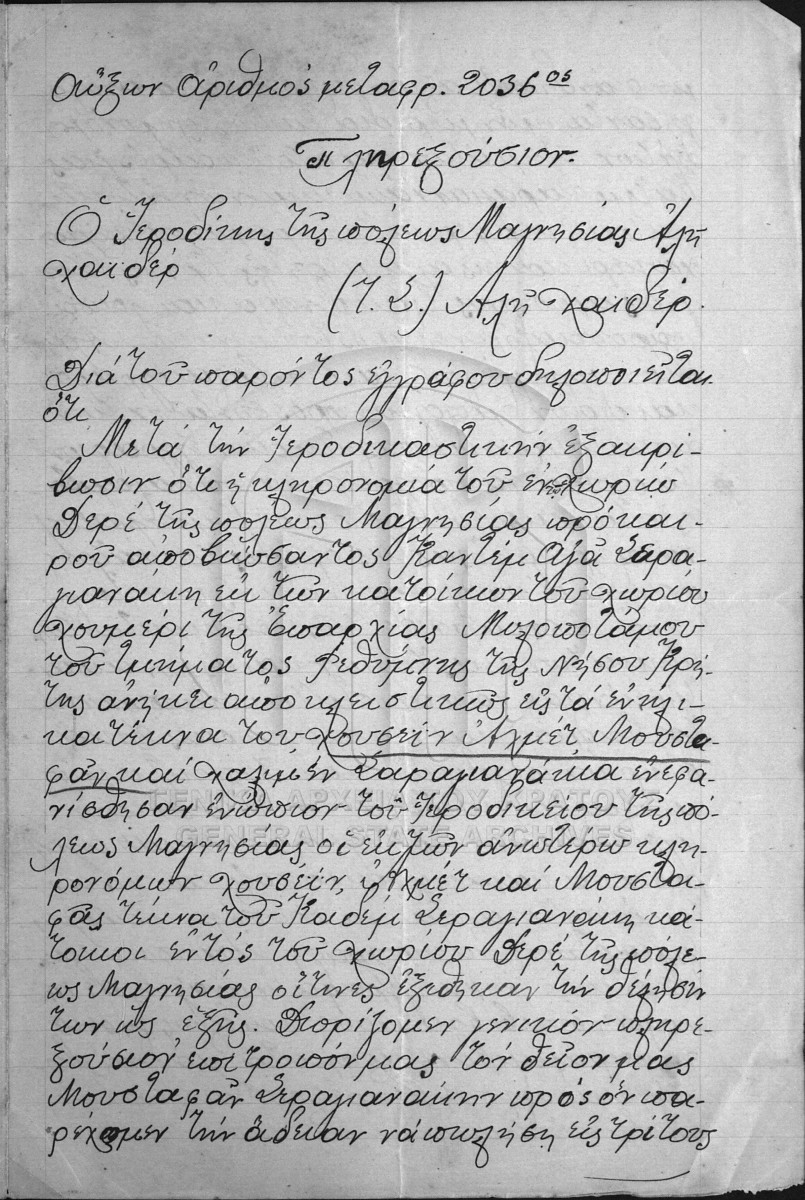 Αὔξων ἀριθμός μεταφρ. 2036ος
Πληρεξούσιον.
Ὁ Ἱεροδίκης τῆς πόλεως Μαγνησίας Ἀλῆ
χαϊδέρ
(Τ. Σ.) Ἀλῆ χαϊδέρ.
Διά τοῦ παρόντος ἐγγράφου δηλοποιεῖται
ὅτι
Μετά τήν Ἱεροδικαστικήν ἐξακρί-
βωσιν ὅτι ἡ κληρονομιά τοῦ ἐν χωρίω
Δερέ τῆς πόλεως Μαγνησίας πρό και-
ροῦ ἀποβιώσαντος Καντέμ Ἀγᾶ Σαρα-
γιανάκη ἐκ τῶν κατοίκων τοῦ χωρίου
χουμέρι τῆς Ἐπαρχίας Μυλοποτάμου
τοῦ τμήματος Ρεθύμνης τῆς Νήσου Κρή-
της ἀνήκει ἀποκλειστικῶς εἰς τά ἐνήλι-
κα τέκνα του χουσεΐν Ἀχμέτ Μουστα-
φᾶν καί χαλιμέν Σαραγιανάκια ἐνεφα-
νίσθησαν ἐνώπιον τοῦ Ἱεροδικείου τῆς πό-
λεως Μαγνησίας οἱ ἐκ τῶν ἀνωτέρω κλη-
ρονόμων χουσεΐν, Ἀχμέτ καί Μουστα-
φᾶς τέκνα τοῦ Καδέμ Σεραγιανάκη κά-
τοικοι ἐντός τοῦ χωρίου Δερέ τῆς πόλε-
ως Μαγνησίας οἵτινες ἐξέθηκαν τήν θέλησίν
των ὡς ἑξῆς. Διορίζομεν γενικόν πληρε-
ξούσιον ἐπίτροπόν μας τόν θεῖον μας
Μουσταφᾶν Σεραγιανάκην πρός ὅν πα-
ρέχομεν τήν ἄδειαν νά πωλήση εἰς τρίτους
ΓΕΝΙΚΑ ΑΡΧΕΙΑ ΤΟΥ ΚΡΑΤΟΥΣ
GENERAL STATE ARCHIVES